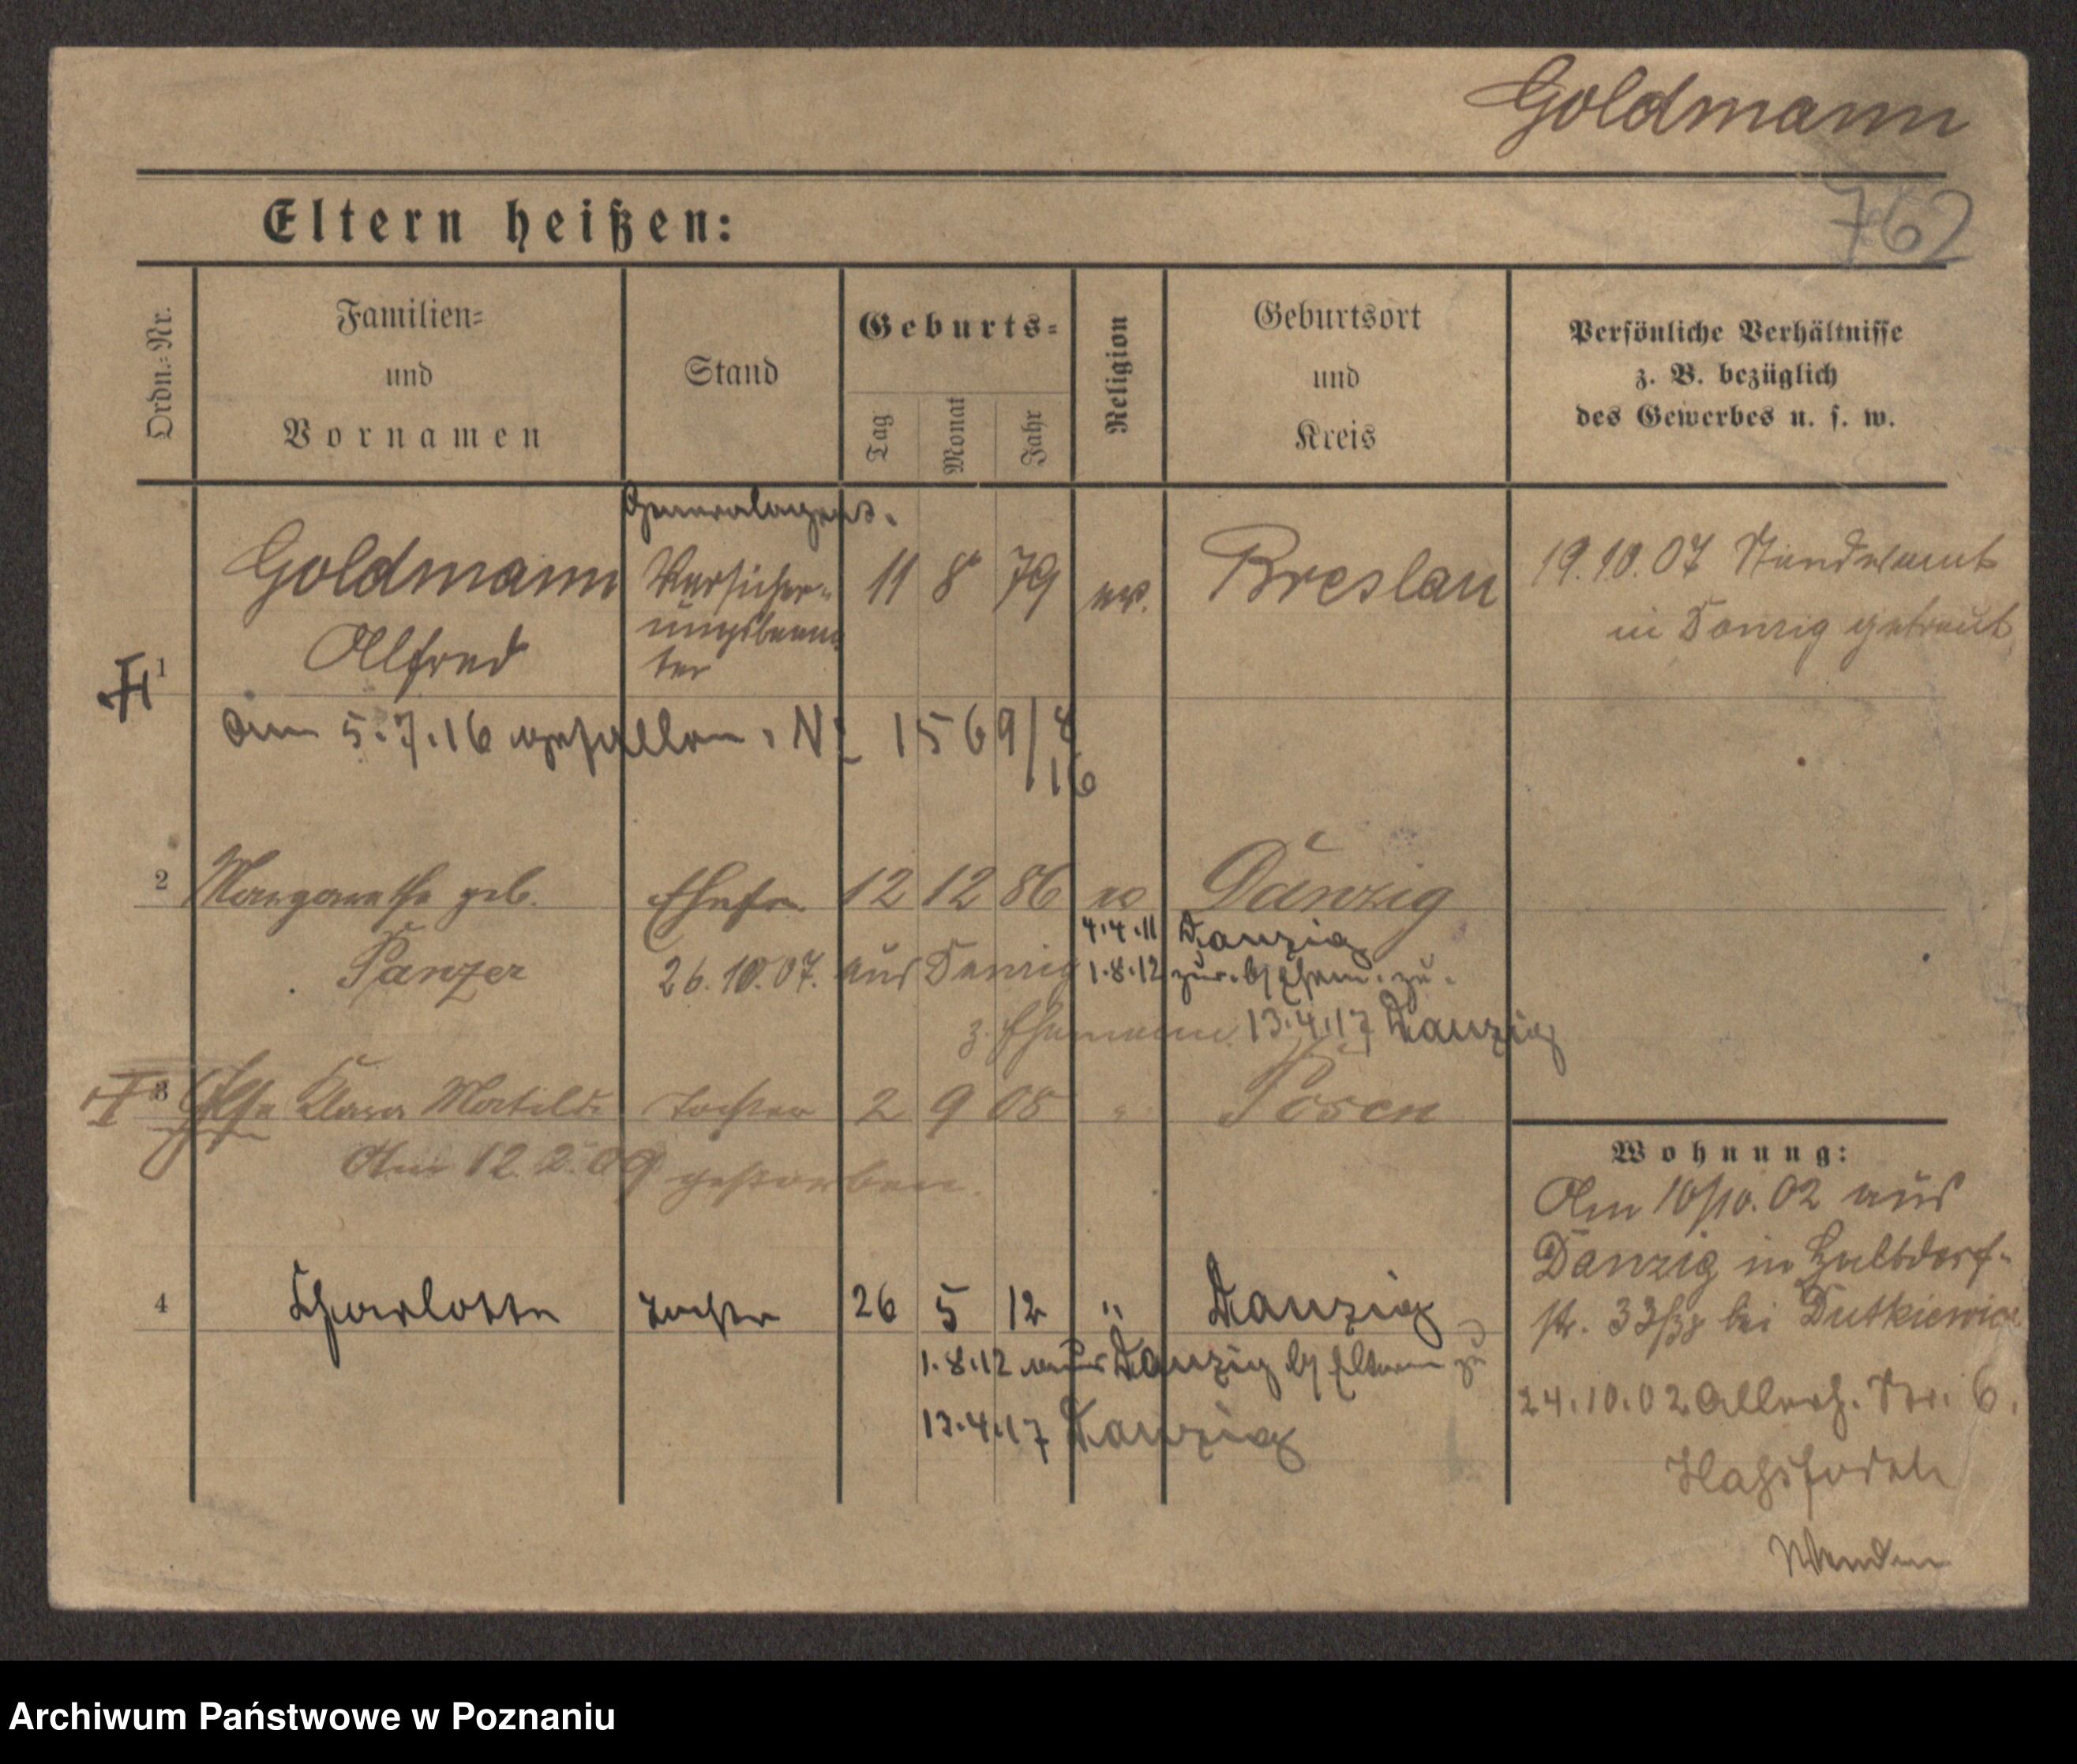 Goldmann
762
Eltern heißen:
Ordn.-Nr.
Familien-
und
Vornamen
Stand
Geburts-
Tag
Monat
Jahr
Religion
Geburtsort
und
Kreis
Persönliche Verhältnisse
z. B. bezüglich
des Gewerbes u. s. w.
Generalagent.
1 Goldmann Versicher- 11 8 79 ev. Breslau 19.10.07 Standesamt
Alfred ungsbeam in Danzig getraut
ter
Am 5.7.16 gefallen. No 1569/8
16
2 Margarethe geb. Ehefr 12 12 86 ev Danzig
4.4.11 Danzig
Panzer 26.10.07. aus Danzig 1.8.12 zur. b/ Ehem. zu.
z. Ehemann. 13.4.17 Danzig
3 Else Klara Matilde Tochter 2 9 08 " Posen
Am 12.2.09 gestorben.
Wohnung:
Am 10/10.02 aus
Danzig in
str. 33 bei Dutkiewicz
4 Charlotte Tochter 26 5 12 " Danzig
1.8.12 aus Danzig b/ Eltern zu
13.4.17 Danzig
24.10.02 Allerh. Str. 6.
Wenden
Archiwum Państwowe w Poznaniu